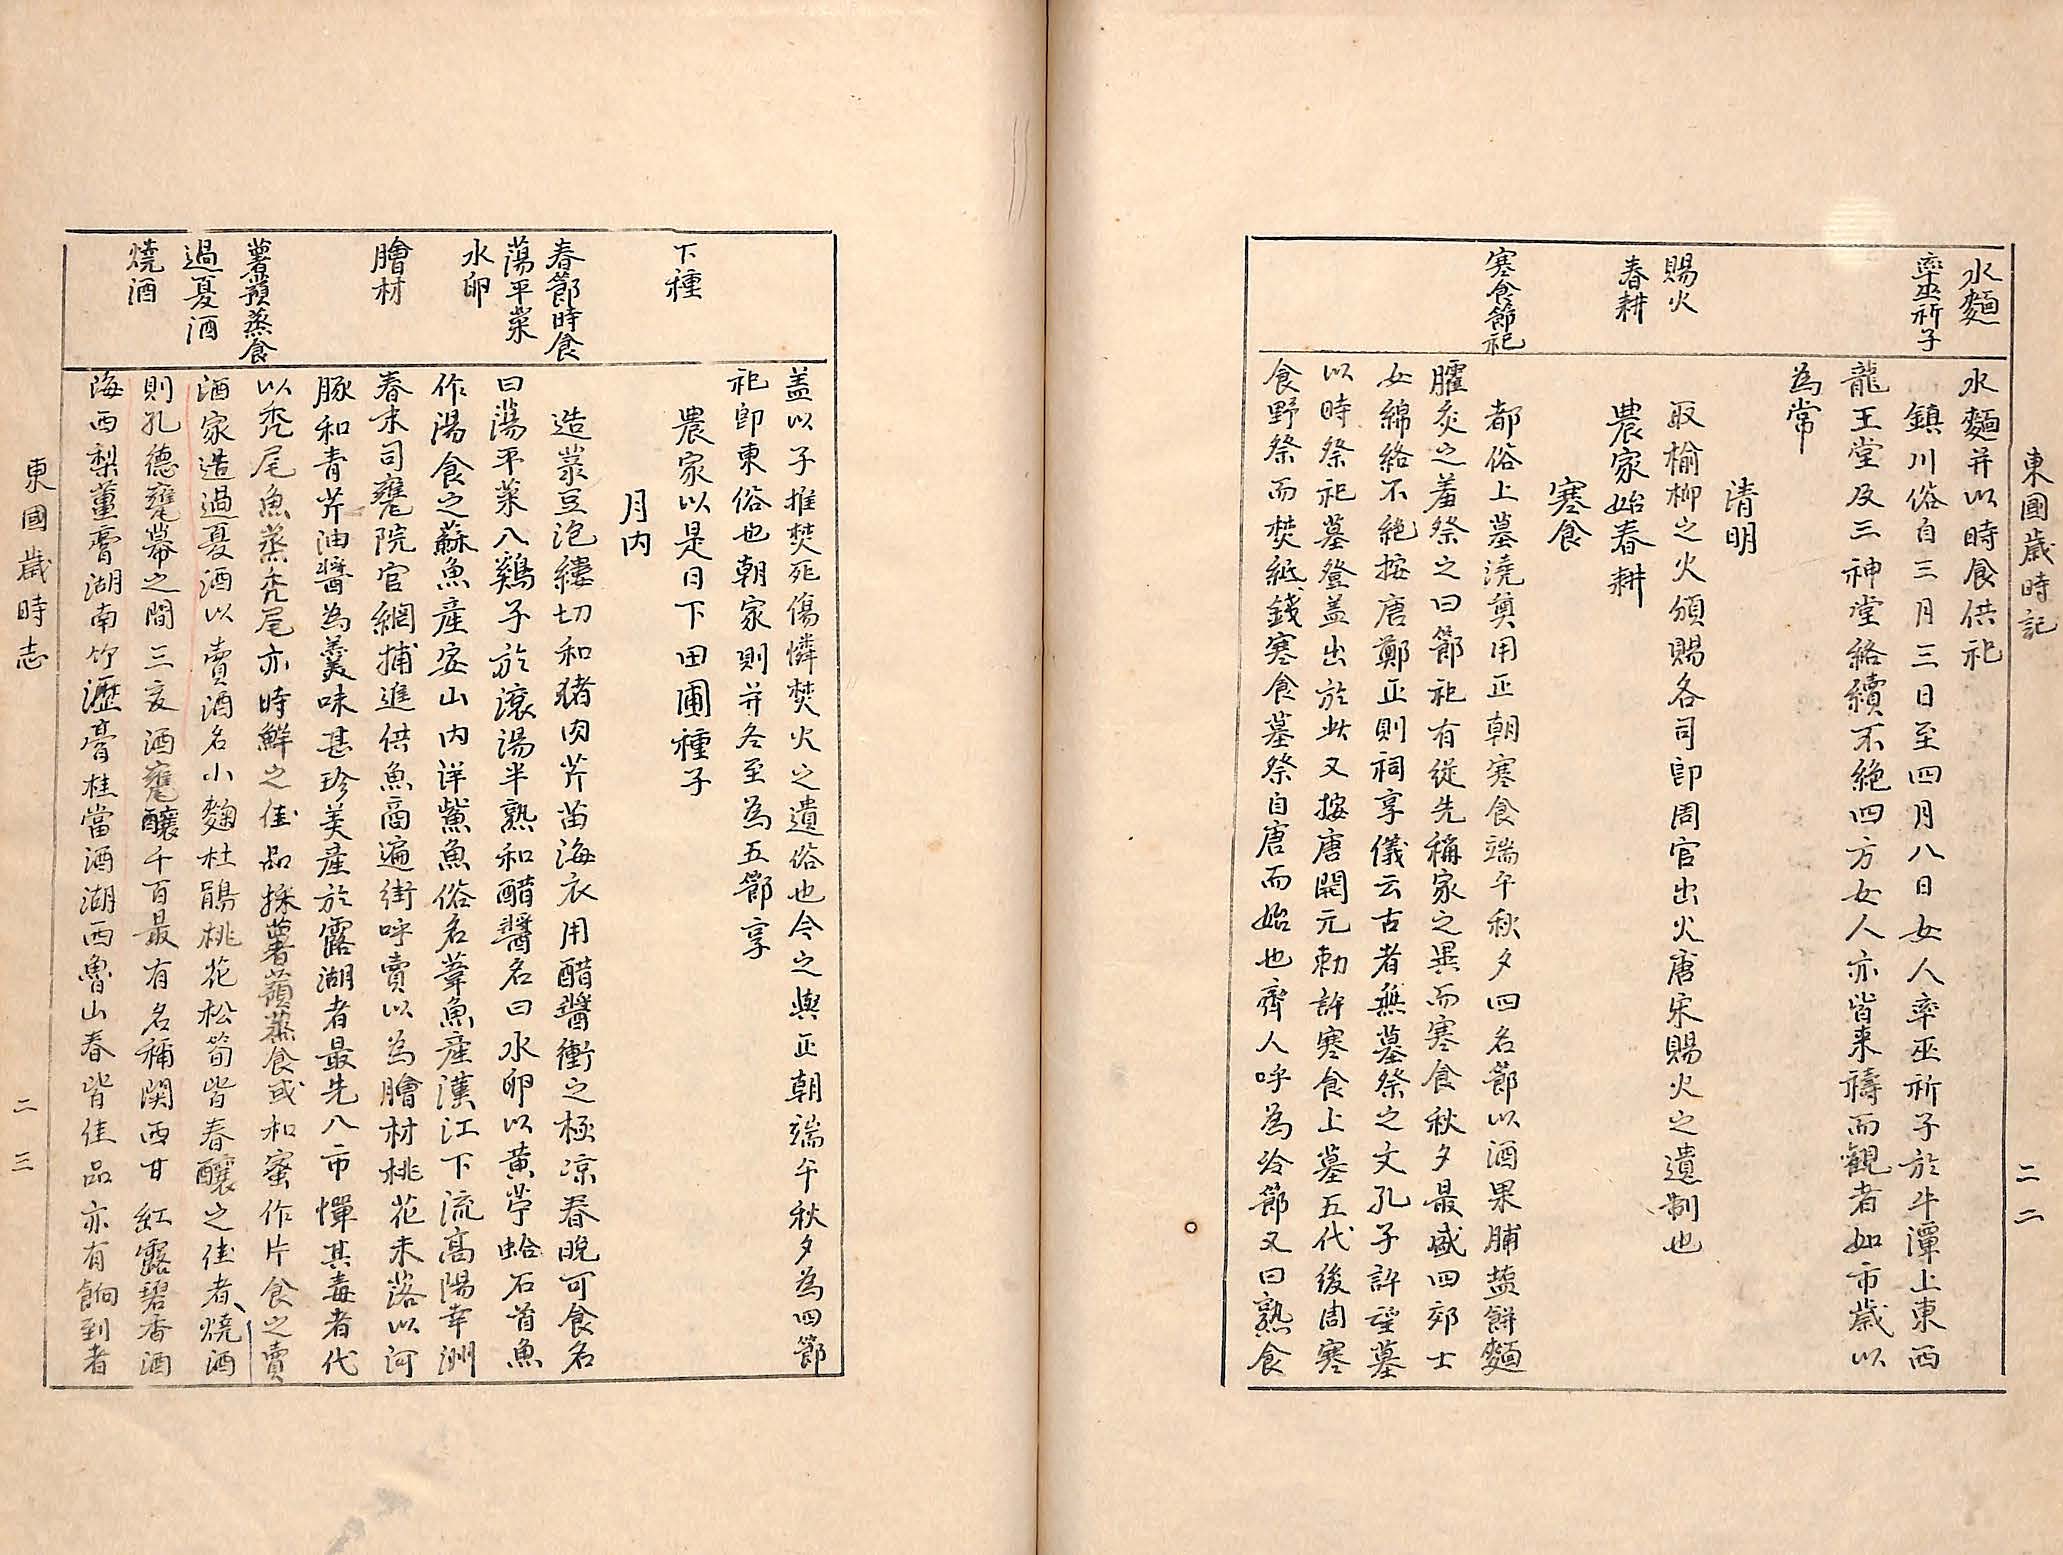 東國歲時記
二二
水麵
率巫祈子
賜火
春耕
寒食節祀
水麵并以時食供祀
鎮川俗自三月三日至四月八日女人率巫祈子於牛潭上東西
龍王堂及三神堂絡續不絶四方女人亦皆来禱而觀者如市歲以
為常
清明
取榆柳之火頒賜各司即周官出火唐宋賜火之遺制也
農家始春耕
寒食
都俗上墓澆奠用正朝寒食端午秋夕四名節以酒果脯醢餅麵
臛炙之羞祭之曰節祀有從先稱家之異而寒食秋夕最盛四郊士
女綿絡不絶按唐鄭正則祠享儀云古者無墓祭之文孔子許望墓
以時祭祀墓登盖出於此又按唐開元勅許寒食上墓五代後周寒
食野祭而焚紙錢寒食墓祭自唐而始也齊人呼為冷節又曰熟食
盖以子推焚死傷憐焚火之遺俗也今之與正朝端午秋夕為四節
祀即東俗也朝家則并冬至為五節享
農家以是日下田圃種子
月内
造菉豆泡縷切和猪肉芹苗海衣用醋醬衝之極凉春晚可食名
曰蕩平菜八鷄子於滚湯半熟和醋醬名曰水卵以黄苧蛤石首魚
作湯食之蘇魚産安山内洋鮆魚俗名葦魚産漢江下流高陽幸洲
春末司甕院官網捕進供魚商遍街呼賣以為膾材桃花未落以河
豚和青芹油醬為羹味甚珍美産於露湖者最先八市憚其毒者代
以秃尾魚蒸秃尾亦時鮮之佳品採薯蕷蒸食或和蜜作片食之賣
酒家造過夏酒以賣酒名小麴杜鵑桃花松筍皆春釀之佳者燒酒
則孔德甕幕之間三亥酒甕釀千百最有名稱関西甘紅露碧香酒
海西梨薑膏湖南竹瀝膏桂當酒湖西魯山春皆佳品亦有餉到者
下種
春節時食
蕩平菜
水卵
膾材
薯蕷蒸食
過夏酒
燒酒
東國歲時志
二三